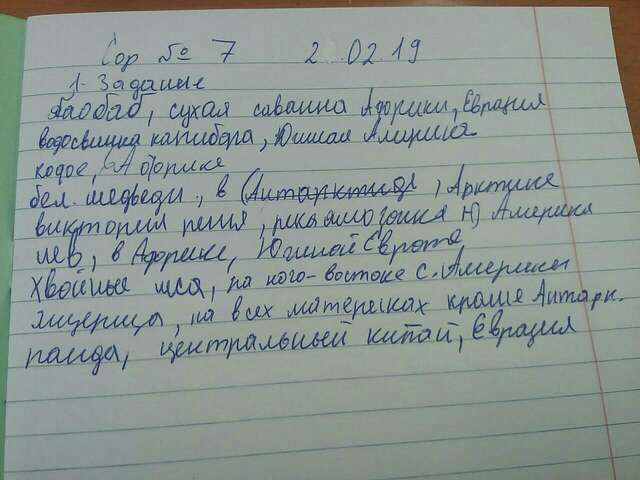 Сор № 7 2 02.19
1. Задание
баобаб, сухая саванна Афорики, Евразия
водосвинка капибара, Южная Америка
кофое, в Афорике
бел. медведи, в (Антарктида), Арктике
виктория регия, река амазонка Ю Америка
лев, в Афорике, Южной Европе
Хвойные леса, на юго-востоке С. Америки
ящерица, на всех материках кроме Антарк.
панда, центральный китай, Евразия